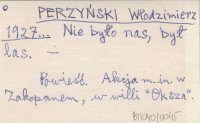 PERZYŃSKI Włodzimierz
1927... Nie było nas, był
las. -
Powieść. Akcja m.in. w
Zakopanem, w willi "Oksza".